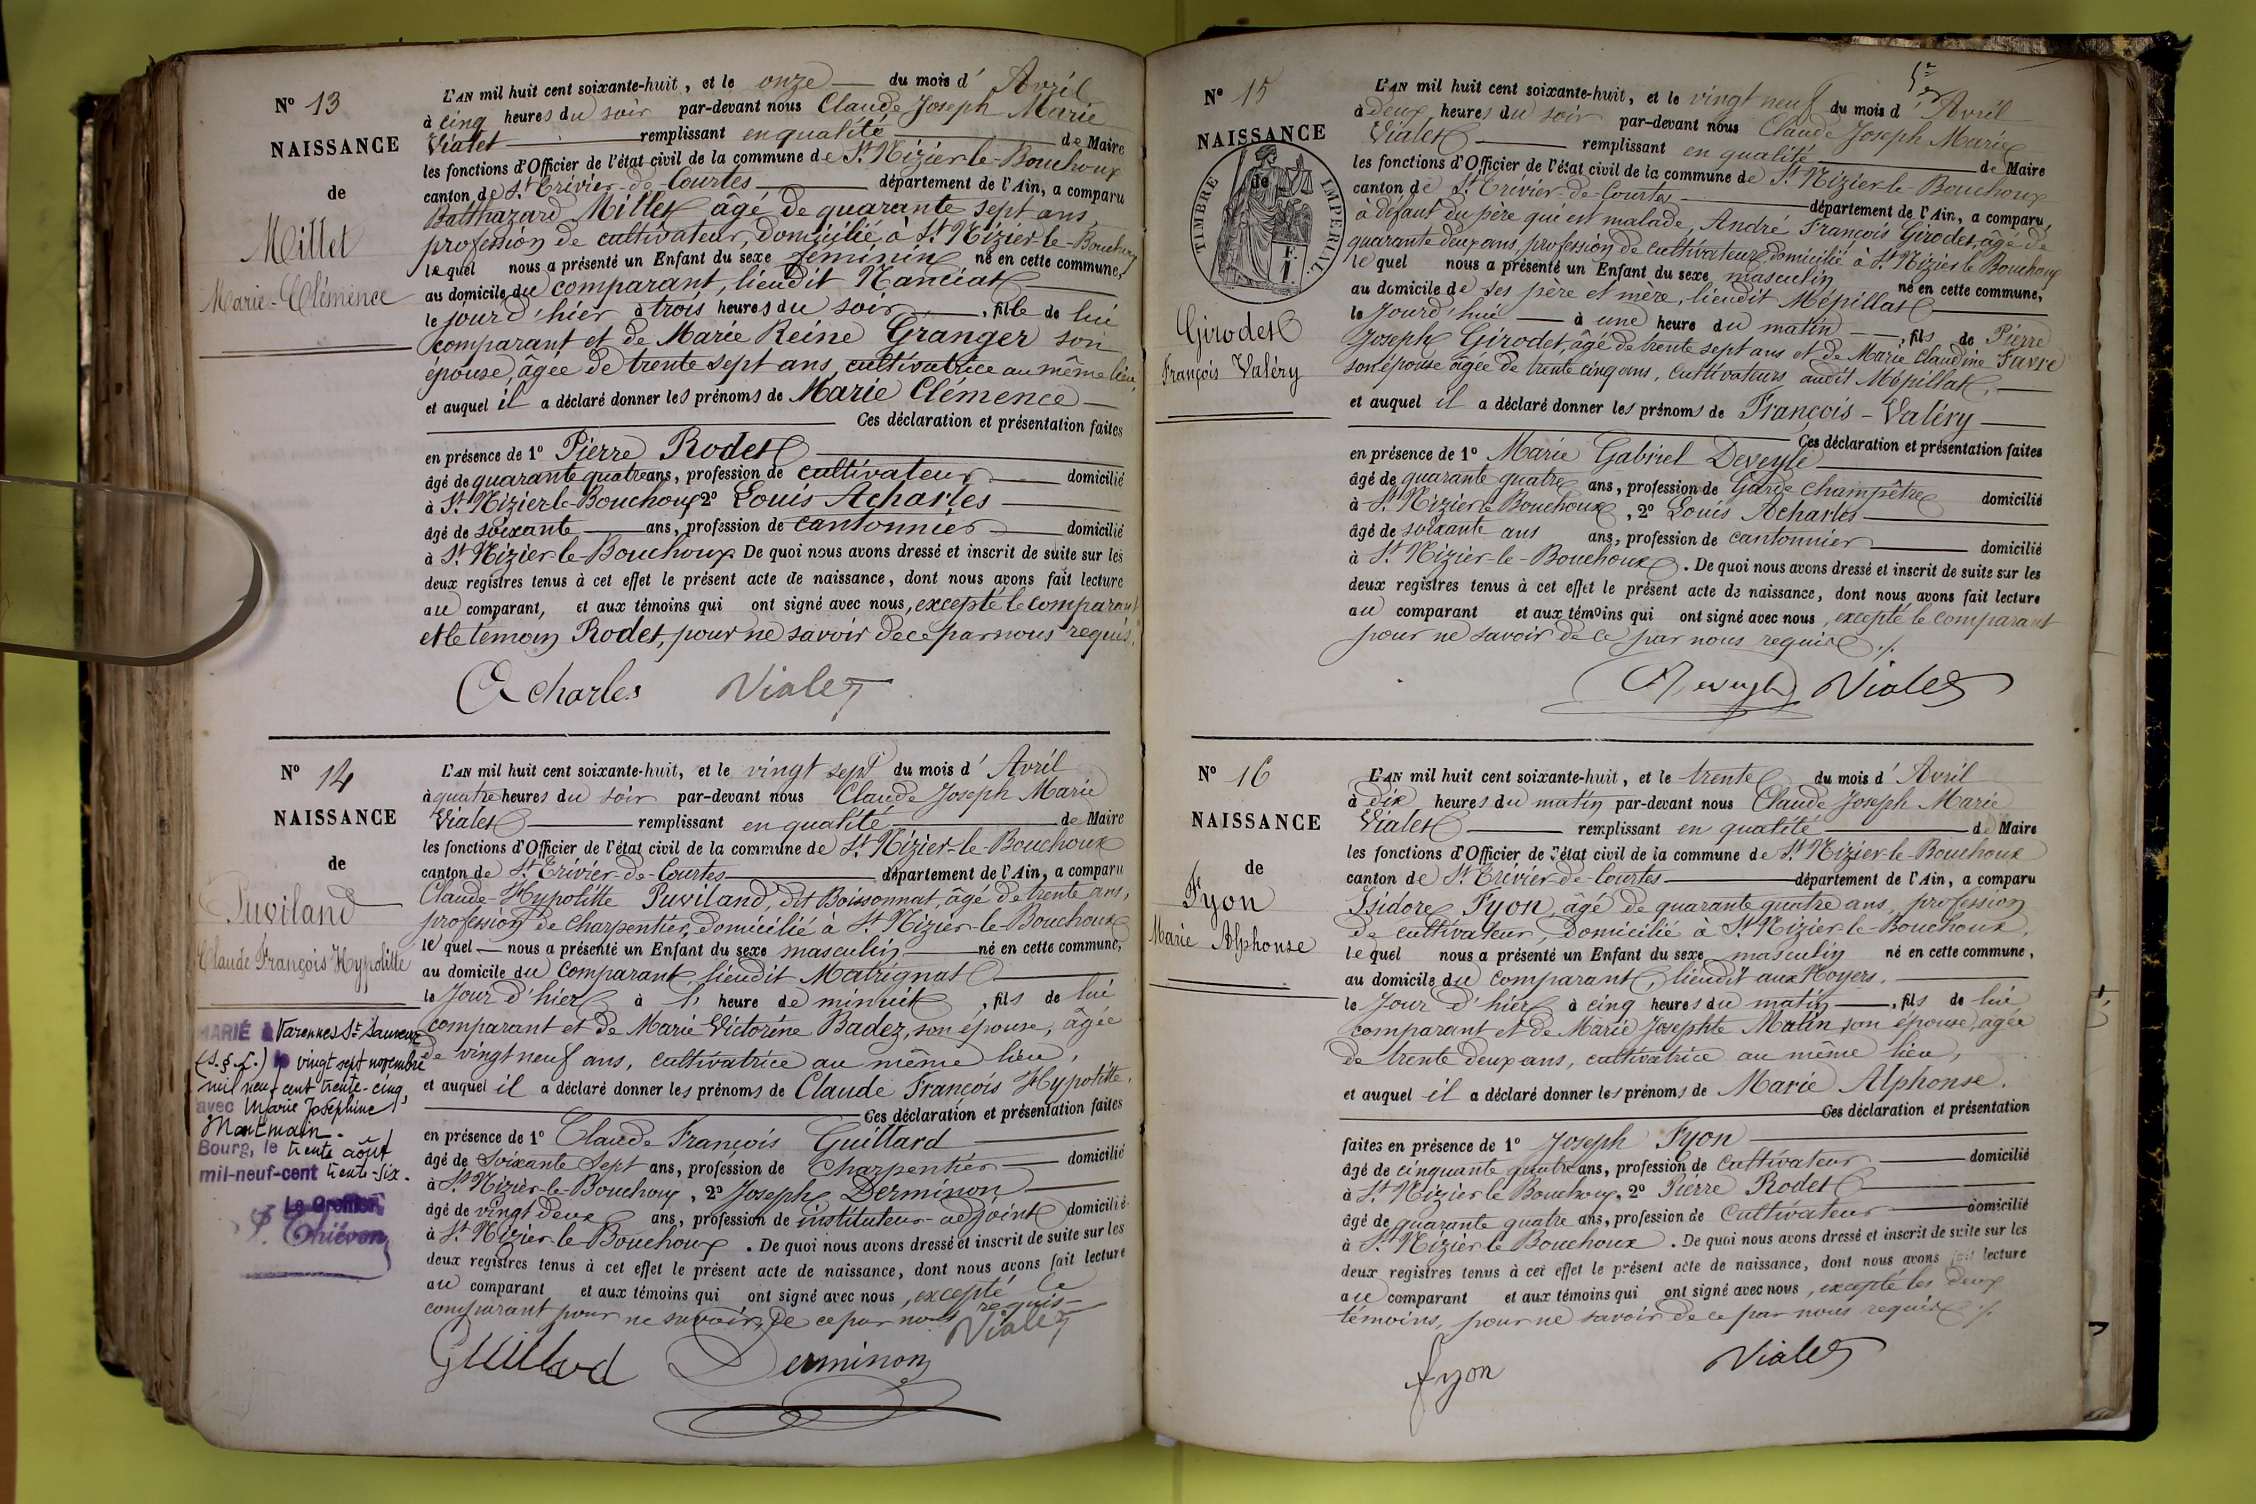 N° 13
NAISSANCE
de
Millet
Marie-Clémence
L'AN mil huit cent soixante-huit, et le onze du mois d'Avril
à cinq heures du soir par-devant nous Claude Joseph Marie
Vialet remplissant en qualité de Maire
les fonctions d'Officier de l'état civil de la commune de St Nizier-le-Bouchoux
canton de St Trivier-de-Courtes département de l'Ain, a comparu
Balthazard Millet âgé de quarante sept ans,
profession de cultivateur, domicilié à St Nizier-le-Bouchoux
lequel nous a présenté un Enfant du sexe féminin né en cette commune,
au domicile du comparant, lieudit Nanciat
le jour d'hier à trois heures du soir, fille de lui
comparant et de Marie Reine Granger son
épouse, âgée de trente sept ans, cultivatrice au même lieu,
et auquel il a déclaré donner les prénoms de Marie Clémence
Ces déclaration et présentation faites
en présence de 1° Pierre Rodet
âgé de quarante quatre ans, profession de cultivateur domicilié
à St Nizier-le-Bouchoux 2° Louis Acharles
âgé de soixante ans, profession de cantonnier domicilié
à St Nizier-le-Bouchoux De quoi nous avons dressé et inscrit de suite sur les
deux registres tenus à cet effet le présent acte de naissance, dont nous avons fait lecture
au comparant, et aux témoins qui ont signé avec nous, excepté le comparant
et le témoin Rodet, pour ne savoir de ce par nous requis.
Acharles Vialet
N° 14
NAISSANCE
de
Puviland
Claude François Hypolitte
MARIÉ à Varennes St Sauveur
(S. & L.) le vingt sept novembre
mil neuf cent trente-cinq,
avec Marie Joséphine
Montmain.
Bourg, le trente août
mil-neuf-cent trente-six.
Le Greffier
Thiévon
L'AN mil huit cent soixante-huit, et le vingt sept du mois d'Avril
à quatre heures du soir par-devant nous Claude Joseph Marie
Vialet remplissant en qualité de Maire
les fonctions d'Officier de l'état civil de la commune de St Nizier-le-Bouchoux
canton de St Trivier-de-Courtes département de l'Ain, a comparu
Claude-Hypolitte Puviland, dit Boissonnat, âgé de trente ans,
profession de charpentier, domicilié à St Nizier-le-Bouchoux
lequel nous a présenté un Enfant du sexe masculin né en cette commune,
au domicile du comparant, lieudit Matrignat
le jour d'hier à l'heure de minuit, fils de lui
comparant et de Marie Victorine Badez, son épouse, âgée
de vingt neuf ans, cultivatrice au même lieu,
et auquel il a déclaré donner les prénoms de Claude François Hypolitte.
Ces déclaration et présentation faites
en présence de 1° Claude François Guillard
âgé de soixante sept ans, profession de charpentier domicilié
à St Nizier-le-Bouchoux, 2° Joseph Derminon
âgé de vingt deux ans, profession de instituteur-adjoint domicilié
à St Nizier-le-Bouchoux. De quoi nous avons dressé et inscrit de suite sur les
deux registres tenus à cet effet le présent acte de naissance, dont nous avons fait lecture
au comparant et aux témoins qui ont signé avec nous, excepté le
comparant pour ne savoir, de ce par nous requis
Vialet
Guillard Derminon
N° 15
NAISSANCE
de
TIMBRE IMPERIAL
Girodet
François Valéry
L'AN mil huit cent soixante-huit, et le vingt neuf du mois d'Avril
à deux heures du soir par-devant nous Claude Joseph Marie
Vialet remplissant en qualité de Maire
les fonctions d'Officier de l'état civil de la commune de St Nizier-le-Bouchoux
canton de St Trivier-de-Courtes département de l'Ain, a comparu,
à défaut du père qui est malade, André François Girodet, âgé de
quarante deux ans, profession de cultivateur, domicilié à St Nizier le Bouchoux
lequel nous a présenté un Enfant du sexe masculin né en cette commune,
au domicile de ses père et mère, lieudit Mépillat
le Jourd'hui à une heure du matin, fils de Pierre
Joseph Girodet, âgé de trente sept ans et de Marie Claudine Favre
son épouse âgée de trente cinq ans, cultivateurs audit Mépillat,
et auquel il a déclaré donner les prénoms de François-Valéry
Ces déclaration et présentation faites
en présence de 1° Marie Gabriel Deveyle
âgé de quarante quatre ans, profession de Garde Champêtre domicilié
à St Nizier le Bouchoux, 2° Louis Acharles
âgé de soixante ans ans, profession de cantonnier domicilié
à St Nizier-le-Bouchoux. De quoi nous avons dressé et inscrit de suite sur les
deux registres tenus à cet effet le présent acte de naissance, dont nous avons fait lecture
au comparant et aux témoins qui ont signé avec nous, excepté le comparant
pour ne savoir de ce par nous requis ./.
Deveyle Vialet
N° 16
NAISSANCE
de
Fyon
Marie Alphonse
L'AN mil huit cent soixante-huit, et le trente du mois d'Avril
à dix heures du matin par-devant nous Claude Joseph Marie
Vialet remplissant en qualité de Maire
les fonctions d'Officier de l'état civil de la commune de St Nizier-le-Bouchoux
canton de St Trivier-de-Courtes département de l'Ain, a comparu
Isidore Fyon, âgé de quarante quatre ans, profession
de cultivateur, domicilié à St Nizier-le-Bouchoux,
lequel nous a présenté un Enfant du sexe masculin né en cette commune,
au domicile du comparant, lieudit aux Noyers.
le Jour d'hier à cinq heures du matin, fils de lui
comparant et de Marie Josephte Matin, son épouse, âgée
de trente deux ans, cultivatrice au même lieu,
et auquel il a déclaré donner les prénoms de Marie Alphonse.
Ces déclaration et présentation
faites en présence de 1° Joseph Fyon
âgé de cinquante quatre ans, profession de cultivateur domicilié
à St Nizier le Bouchoux, 2° Pierre Rodet
âgé de quarante quatre ans, profession de cultivateur domicilié
à St Nizier-le Bouchoux. De quoi nous avons dressé et inscrit de suite sur les
deux registres tenus à cet effet le présent acte de naissance, dont nous avons fait lecture
au comparant et aux témoins qui ont signé avec nous, excepté les deux
témoins, pour ne savoir de ce par nous requis ./.
fyon Vialet